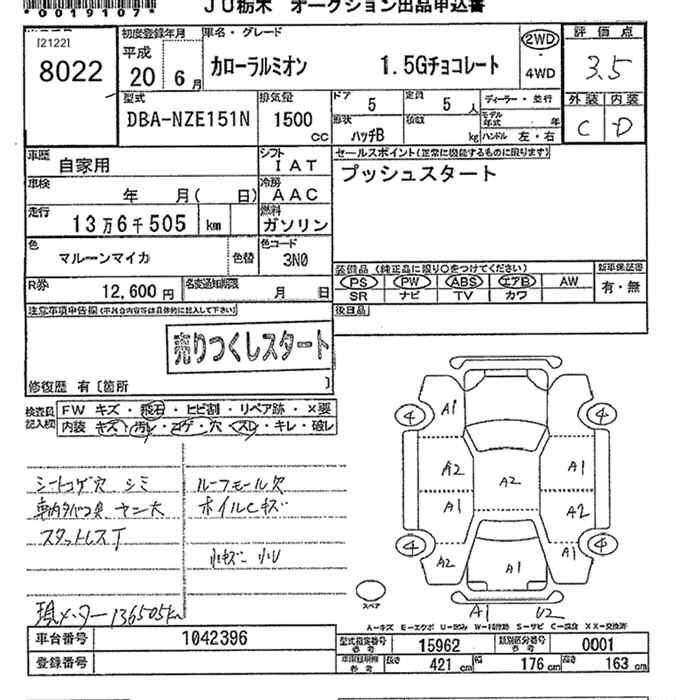 *0019107*
JU栃木 オークション出品申込書
[2122]
8022
初度登録年月
平成
20年6月
車名・グレード
カローラルミオン 1.5Gチョコレート
2WD
・
4WD
評価点
3.5
外装 内装
C D
型式
DBA-NZE151N
排気量
1500
cc
ドア 5
定員 5人
ディーラー・並行
形状
ハッチB
積数 kg
モデル年式 年
ハンドル 左・右
車歴
自家用
シフト
IAT
セールスポイント(正常に機能するものに限ります)
プッシュスタート
車検
年 月( 日)
冷房
AAC
走行
13万6千505 km
燃料
ガソリン
色
マルーンマイカ
色替
色コード
3N0
装備品 (純正品に限り○をつけてください)
新車保証書
PS PW ABS エアB AW
有・無
SR ナビ TV カワ
R券
12,600円
名変通知期限
月 日
後日品
注意事項申告欄
売りつくしスタート
修復歴 有〔箇所 〕
検査員記入欄
FW キズ・飛石・ヒビ割・リペア跡・X要
内装 キズ・汚レ・コゲ・穴・スレ・キレ・破レ
シートコゲ穴 シミ
ルーフモール欠
車内タバコ臭 ヤニ大
ホイルCキズ
スタットレスT
小キズ 小U
現メーター136505km
A1
4 4
A2 A2 A1
A1 A2
4 4
A2 A1 A1
スペア
A1 U2
A-キズ E-エクボ U-凹み W-補修跡 S-サビ C-腐食 XX-交換済
車台番号 1042396
型式指定番号 参考 15962
類別区分番号 参考 0001
登録番号
長さ 421 cm 幅 176 cm 高さ 163 cm